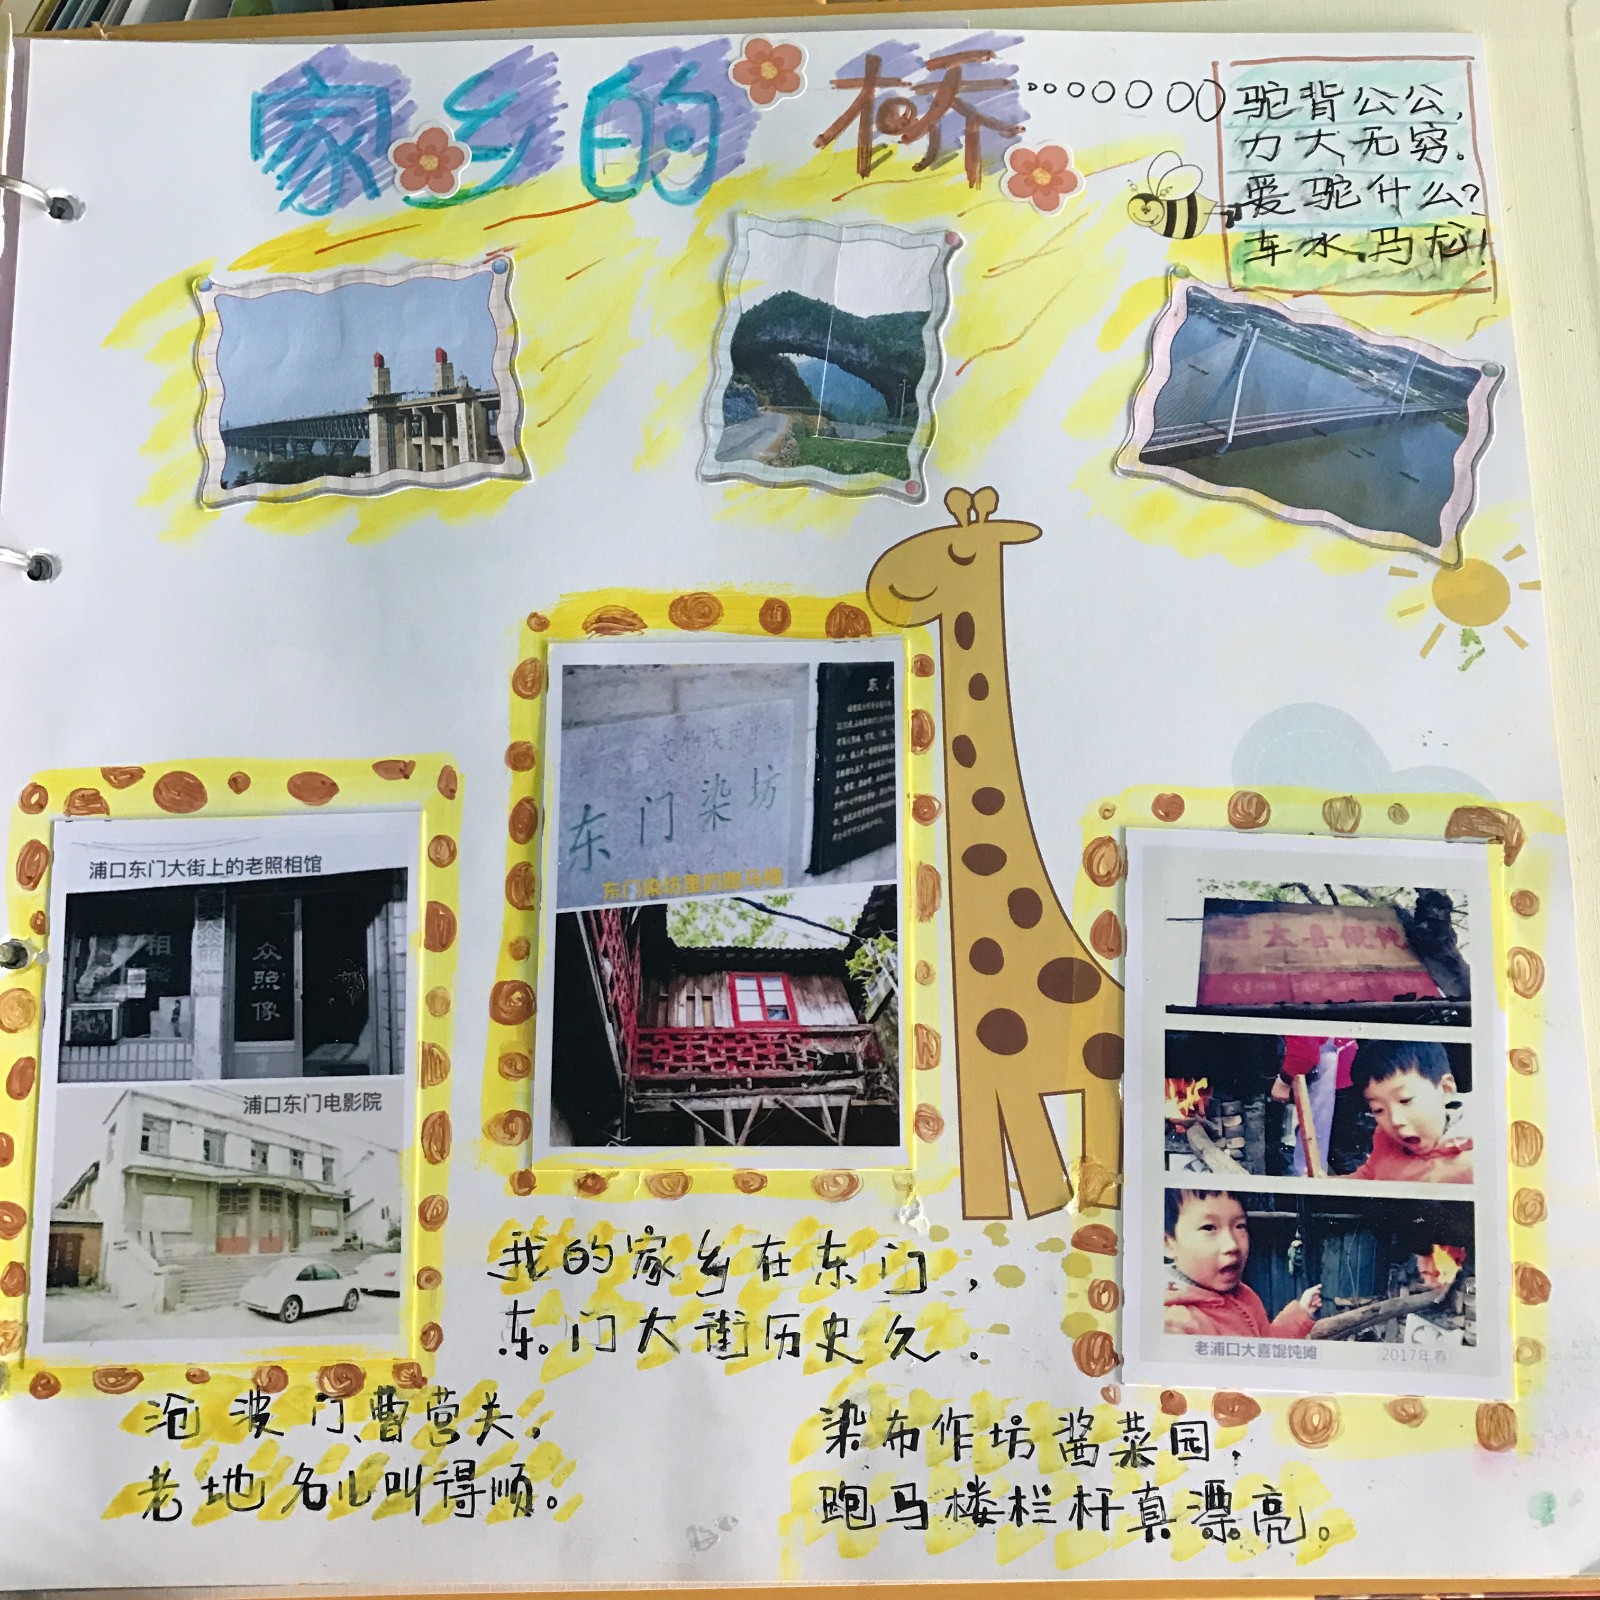 家乡的桥
驼背公公,
力大无穷。
爱驼什么?
车水马龙!
文物保护单位
东门染坊
东门染坊里的跑马楼
浦口东门大街上的老照相馆
众照像
浦口东门电影院
大喜馄饨
老浦口大喜馄饨摊
2017年春
我的家乡在东门,
东门大街历史久.
沧波门、曹营关,
老地名儿叫得顺。
染布作坊酱菜园,
跑马楼栏杆真漂亮。